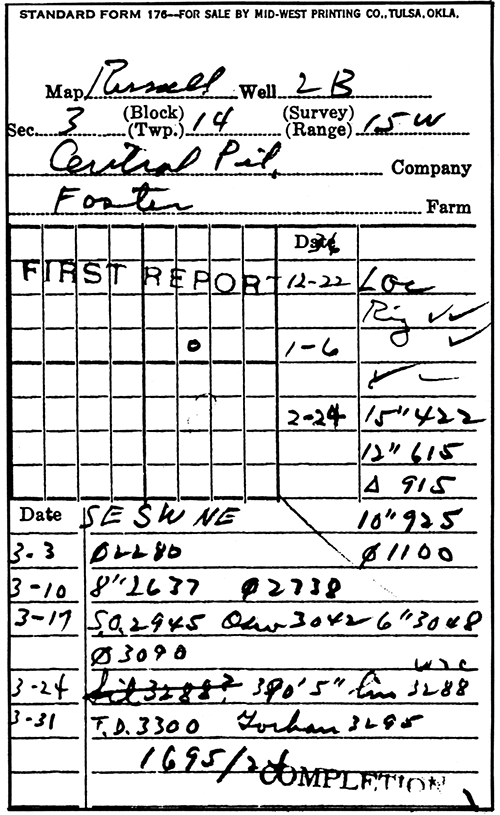 STANDARD FORM 176--FOR SALE BY MID-WEST PRINTING CO., TULSA, OKLA.
Map Russell Well 2B
Sec. 3 (Block) (Twp.) 14 (Survey) (Range) 15W
Central Pet, Company
Foster Farm
Date 36
FIRST REPORT 12-22 Loc
Rig ✓✓
1-6 ✓
✓
2-24 15" 422
12" 615
Δ 915
Date SE SW NE 10" 925
3-3 Ø2280 Ø1100
3-10 8" 2637 Ø2738
3-17 S.O. 2945 3042 6" 3048
Ø3090
3-24 3288? 390' 5" 3288
3-31 T.D. 3300 3295
1695/24
COMPLETION